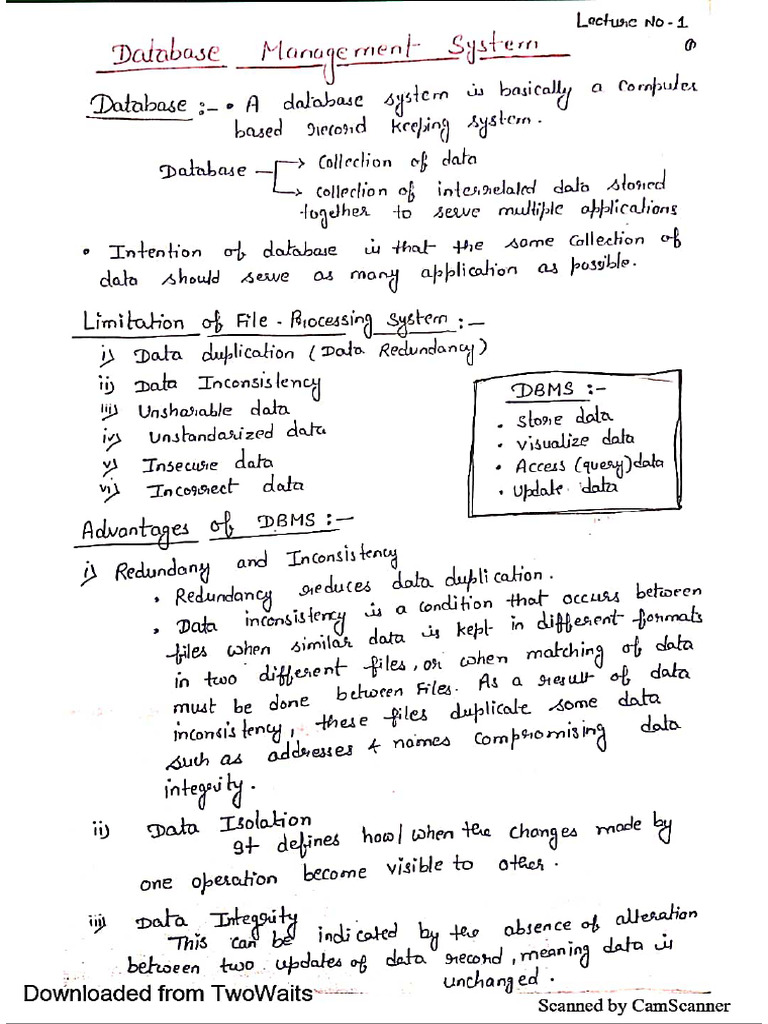 Lecture No-1
①
Database Management System
Database :- • A database system is basically a computer
based record keeping system.
Database → Collection of data
→ collection of interrelated data stored
together to serve multiple applications
• Intention of database is that the same collection of
data should serve as many application as possible.
Limitation of File-Processing System :-
i) Data duplication (Data Redundancy)
ii) Data Inconsistency
iii) Unsharable data
iv) Unstandarized data
v) Insecure data
vi) Incorrect data
DBMS :-
• Store data
• Visualize data
• Access (query) data
• Update data
Advantages of DBMS :-
i) Redundany and Inconsistency
• Redundancy reduces data duplication.
• Data inconsistency is a condition that occurs between
files when similar data is kept in different formats
in two different files, or when matching of data
must be done between Files. As a result of data
inconsistency, these files duplicate some data
such as addresses & names compromising data
integrity.
ii) Data Isolation
It defines how/when the changes made by
one operation become visible to other.
iii) Data Integrity
This can be indicated by the absence of alteration
between two updates of data record, meaning data is
unchanged.
Downloaded from TwoWaits
Scanned by CamScanner